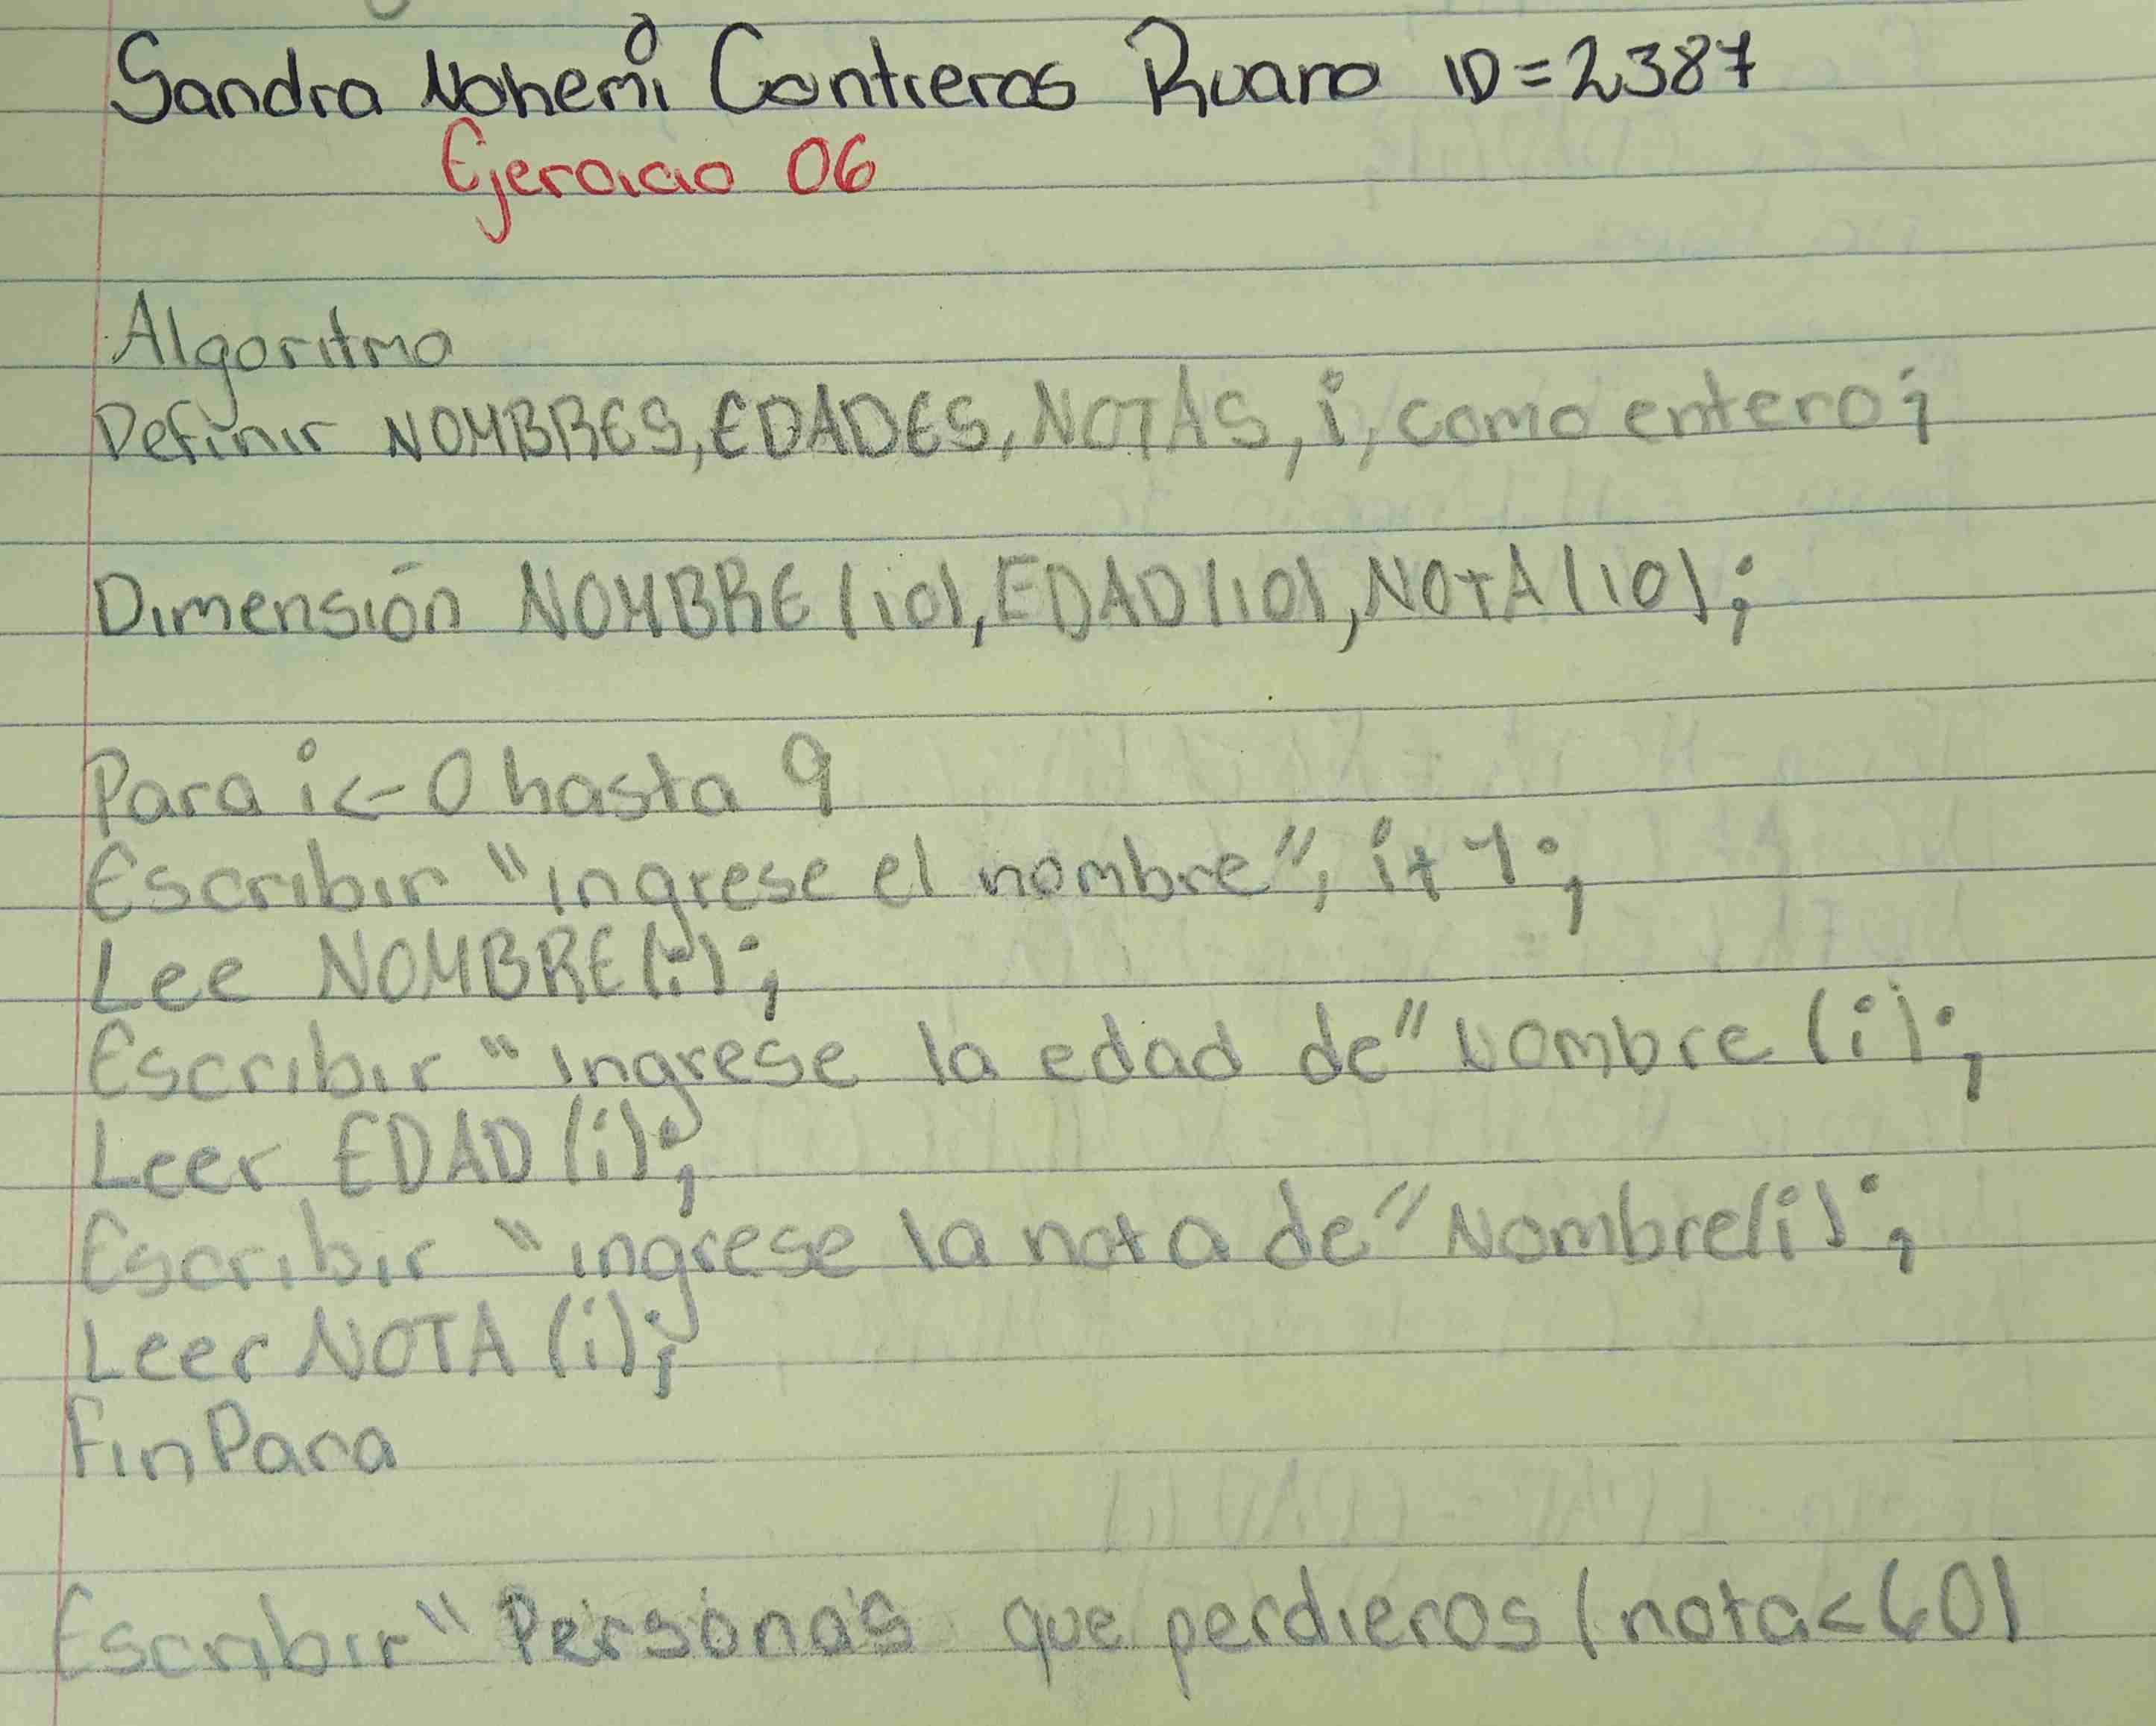 Sandra Nohemí Contreras Ruano ID=2387
Ejercicio 06
Algoritmo
Definir NOMBRES, EDADES, NOTAS, i, como entero;
Dimensión NOMBRE (10), EDAD (10), NOTA (10);
Para i<-0 hasta 9
Escribir "ingrese el nombre", i+1;
Lee NOMBRE(i);
Escribir "ingrese la edad de" Nombre (i);
Leer EDAD (i);
Escribir "ingrese la nota de" Nombre(i);
Leer NOTA (i);
FinPara
Escribir "Personas que perdieros (nota<60)